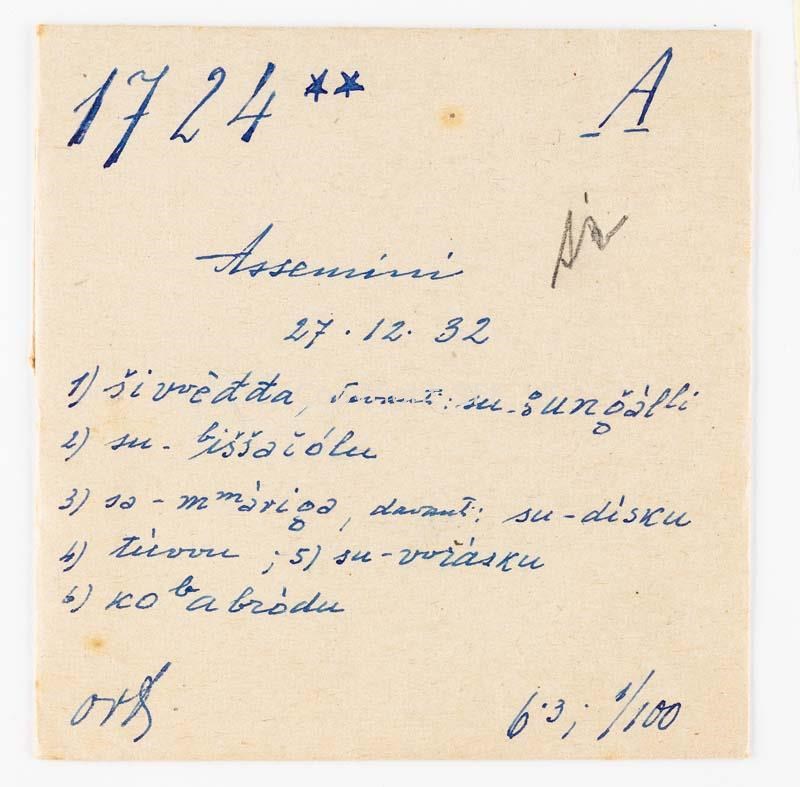 1724** A
Assemini
27.12.32
1) šivvèđđa, davant: su-gungálli
2) su-ᵇiššaiólu
3) sa-mᵐàriga, davant: su-dísku
4) túvvu ; 5) su-vořásku
6) koᵇabródu
6.3; 1/100